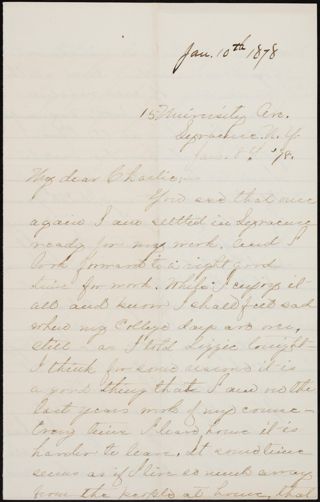 Jan. 10th 1878
15 University Ave.
Syracuse. N. Y.
Jan. 8th '78.
My dear Charlie,
You see that once
again I am settled in Syracuse
ready for my work. And I
look forward to a right good
time for work. While I enjoy it
all and know I shall feel sad
when my College days are over,
still as I told Lizzie tonight
I think for some reasons it is
a good thing that I am on the
last years work of my course
Every time I leave home it is
harder to leave. It sometime
seems as if I live so much away
from the people at home, that